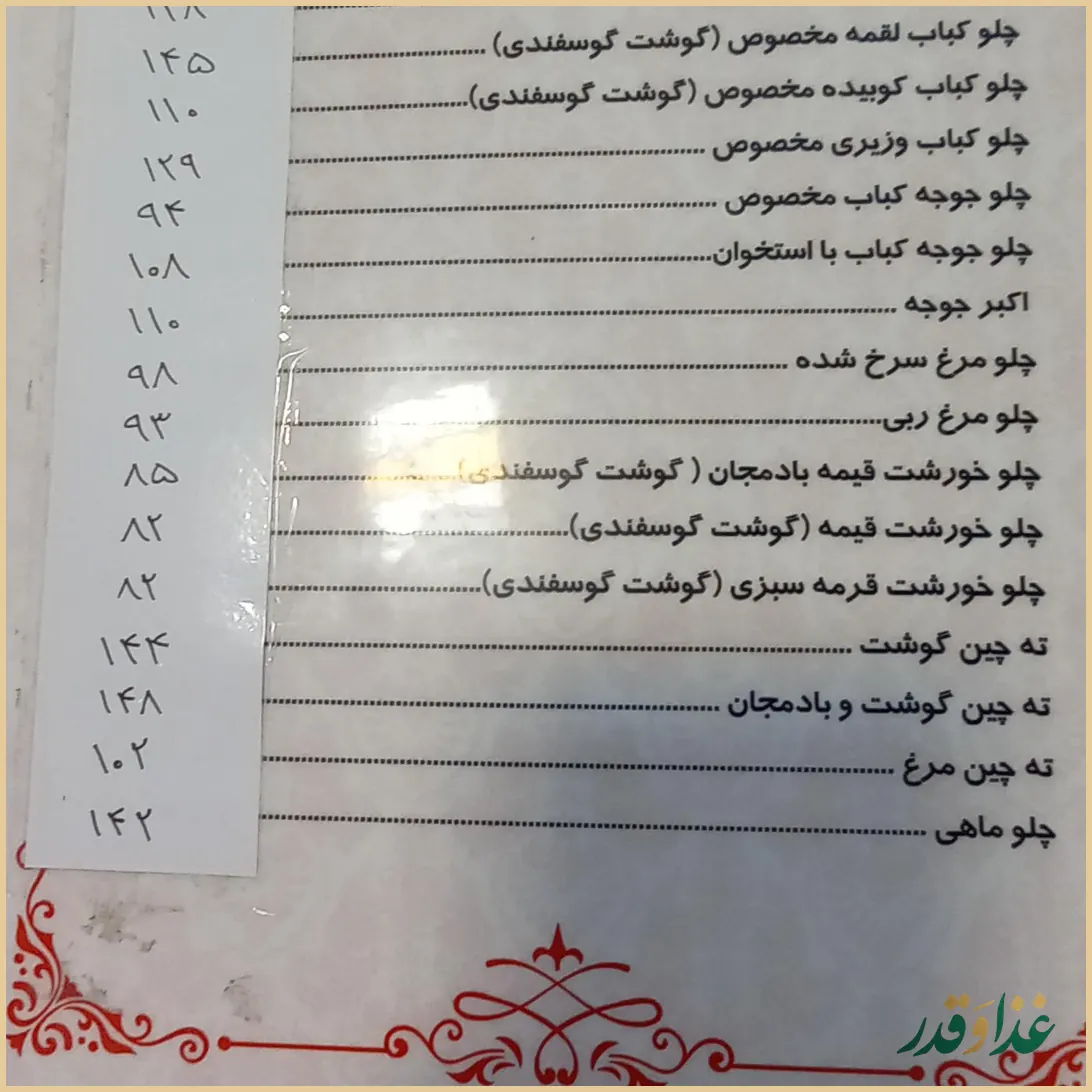 چلو کباب لقمه مخصوص (گوشت گوسفندی) ........ ۱۴۵
چلو کباب کوبیده مخصوص (گوشت گوسفندی) ........ ۱۱۰
چلو کباب وزیری مخصوص ........ ۱۲۹
چلو جوجه کباب مخصوص ........ ۹۴
چلو جوجه کباب با استخوان ........ ۱۰۸
اکبر جوجه ........ ۱۱۰
چلو مرغ سرخ شده ........ ۹۸
چلو مرغ ربی ........ ۹۳
چلو خورشت قیمه بادمجان ( گوشت گوسفندی) ........ ۸۵
چلو خورشت قیمه (گوشت گوسفندی) ........ ۸۲
چلو خورشت قرمه سبزی (گوشت گوسفندی) ........ ۸۲
ته چین گوشت ........ ۱۴۴
ته چین گوشت و بادمجان ........ ۱۴۸
ته چین مرغ ........ ۱۰۲
چلو ماهی ........ ۱۴۲
غذا وَ قدر